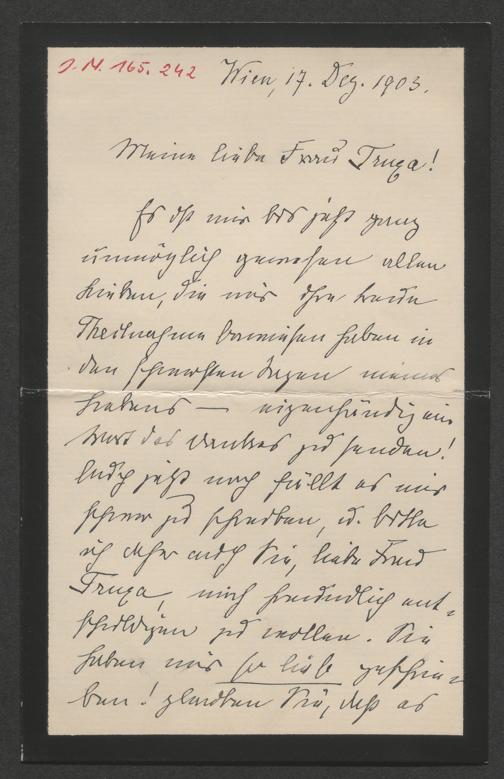 J. N. 165.242
Wien, 17. Dez. 1903.
Meine liebe Frau Truxa!
Es ist mir bis jetzt ganz
unmöglich gewesen allen
Lieben, die mir ihre treue
Theilnahme bewiesen haben in
den schwersten Tagen meines
Lebens — eigenhändig ein
Wort des Dankes zu senden!
Auch jetzt noch fällt es mir
schwer zu schreiben, u. bitte
ich daher auch Sie, liebe Frau
Truxa, mich freundlich ent-
schuldigen zu wollen. Sie
haben mir so lieb geschrie-
ben! glauben Sie, daß es